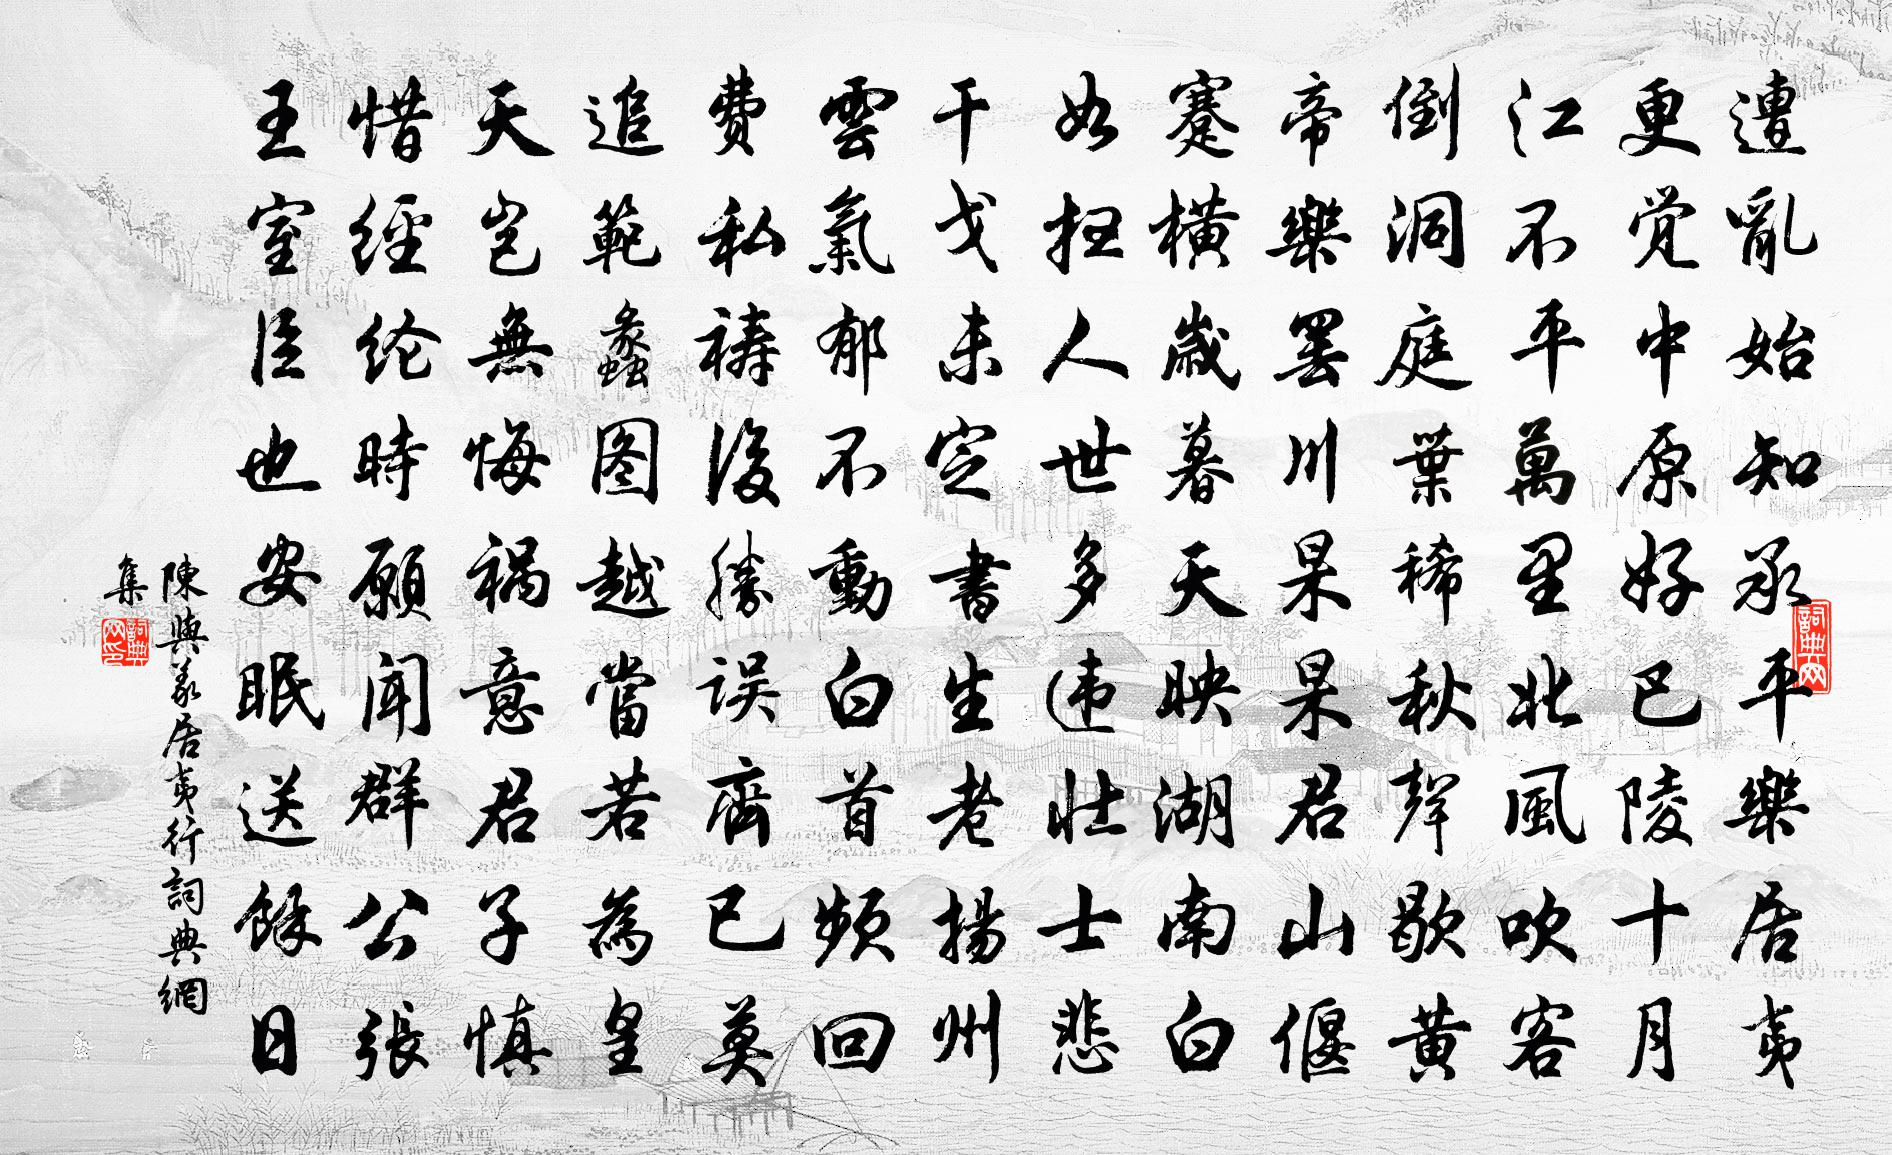 遭亂始知承平樂居夷
更觉中原好巴陵十月
江不平萬里北風吹客
倒洞庭葉稀秋聲歇黄
帝樂罢川杲杲君山偃
蹇横歲暮天映湖南白
如扫人世多违壮士悲
干戈未定書生老揚州
雲氣郁不動白首频回
費私禱後勝误齊已莫
追範蠡图越當若為皇
天岂無悔禍意君子慎
惜經纶時願闻群公張
王室臣也安眠送餘日
陳與義居夷行詞典網
集
詞典网
詞典网印